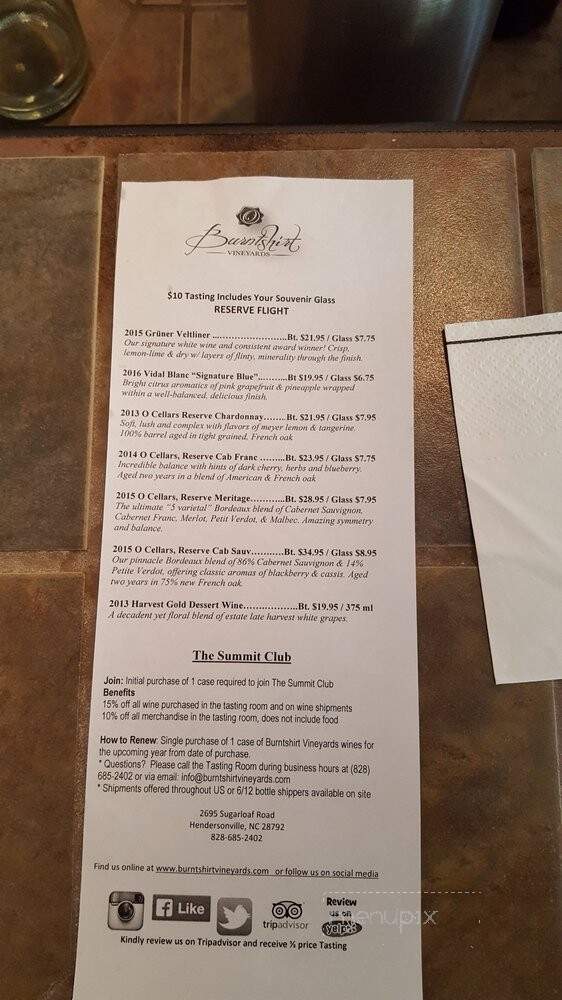 Burntshirt
VINEYARDS
$10 Tasting Includes Your Souvenir Glass
RESERVE FLIGHT
2015 Grüner Veltliner ........................Bt. $21.95 / Glass $7.75
Our signature white wine and consistent award winner! Crisp,
lemon-lime & dry w/ layers of flinty, minerality through the finish.
2016 Vidal Blanc "Signature Blue".........Bt $19.95 / Glass $6.75
Bright citrus aromatics of pink grapefruit & pineapple wrapped
within a well-balanced, delicious finish.
2013 O Cellars Reserve Chardonnay.......Bt. $21.95 / Glass $7.95
Soft, lush and complex with flavors of meyer lemon & tangerine.
100% barrel aged in tight grained, French oak
2014 O Cellars, Reserve Cab Franc .........Bt. $23.95 / Glass $7.75
Incredible balance with hints of dark cherry, herbs and blueberry.
Aged two years in a blend of American & French oak
2015 O Cellars, Reserve Meritage...........Bt. $28.95 / Glass $7.95
The ultimate "5 varietal" Bordeaux blend of Cabernet Sauvignon,
Cabernet Franc, Merlot, Petit Verdot, & Malbec. Amazing symmetry
and balance.
2015 O Cellars, Reserve Cab Sauv...........Bt. $34.95 / Glass $8.95
Our pinnacle Bordeaux blend of 86% Cabernet Sauvignon & 14%
Petite Verdot, offering classic aromas of blackberry & cassis. Aged
two years in 75% new French oak.
2013 Harvest Gold Dessert Wine..................Bt. $19.95 / 375 ml
A decadent yet floral blend of estate late harvest white grapes.
The Summit Club
Join: Initial purchase of 1 case required to join The Summit Club
Benefits
15% off all wine purchased in the tasting room and on wine shipments
10% off all merchandise in the tasting room, does not include food
How to Renew: Single purchase of 1 case of Burntshirt Vineyards wines for
the upcoming year from date of purchase.
* Questions? Please call the Tasting Room during business hours at (828)
685-2402 or via email: info@burntshirtvineyards.com
* Shipments offered throughout US or 6/12 bottle shippers available on site
2695 Sugarloaf Road
Hendersonville, NC 28792
828-685-2402
Find us online at www.burntshirtvineyards.com or follow us on social media
f Like
tripadvisor
Review
us on
yelp
menupix
Kindly review us on Tripadvisor and receive ½ price Tasting